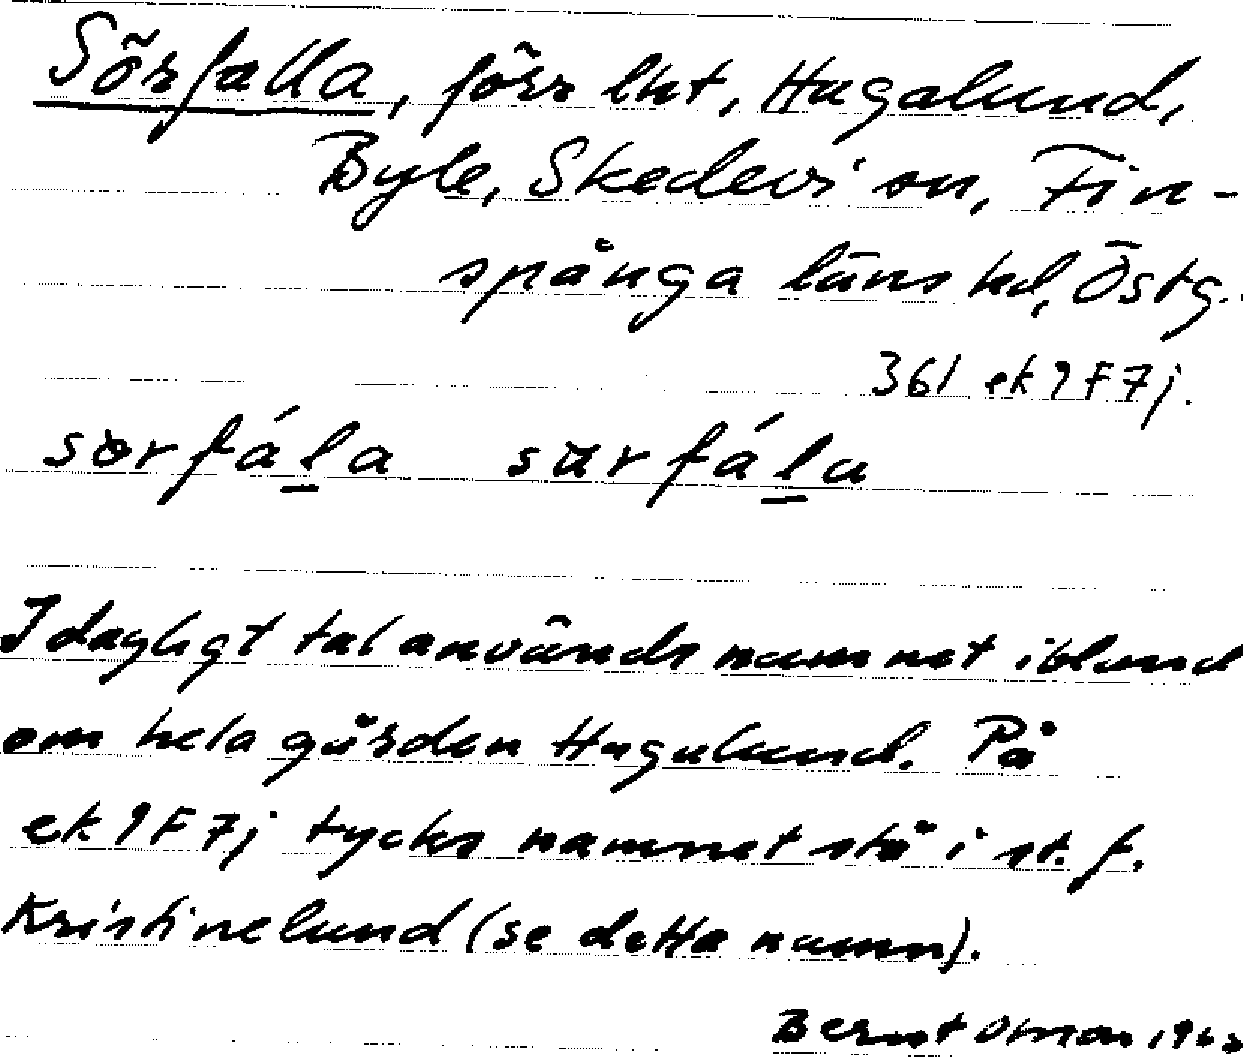 Sörfalla, förr lht, Hagalund,
Byle, Skedevi sn, Fin-
spånga läns hd, Östg.
361 ek 9F7j.
sörfála sarfála
I dagligt tal används namnet ibland
om hela gården Hagalund. På
ek 9F7j tycks namnet stå i st. f.
Kristinelund (se detta namn).
Bernt 196